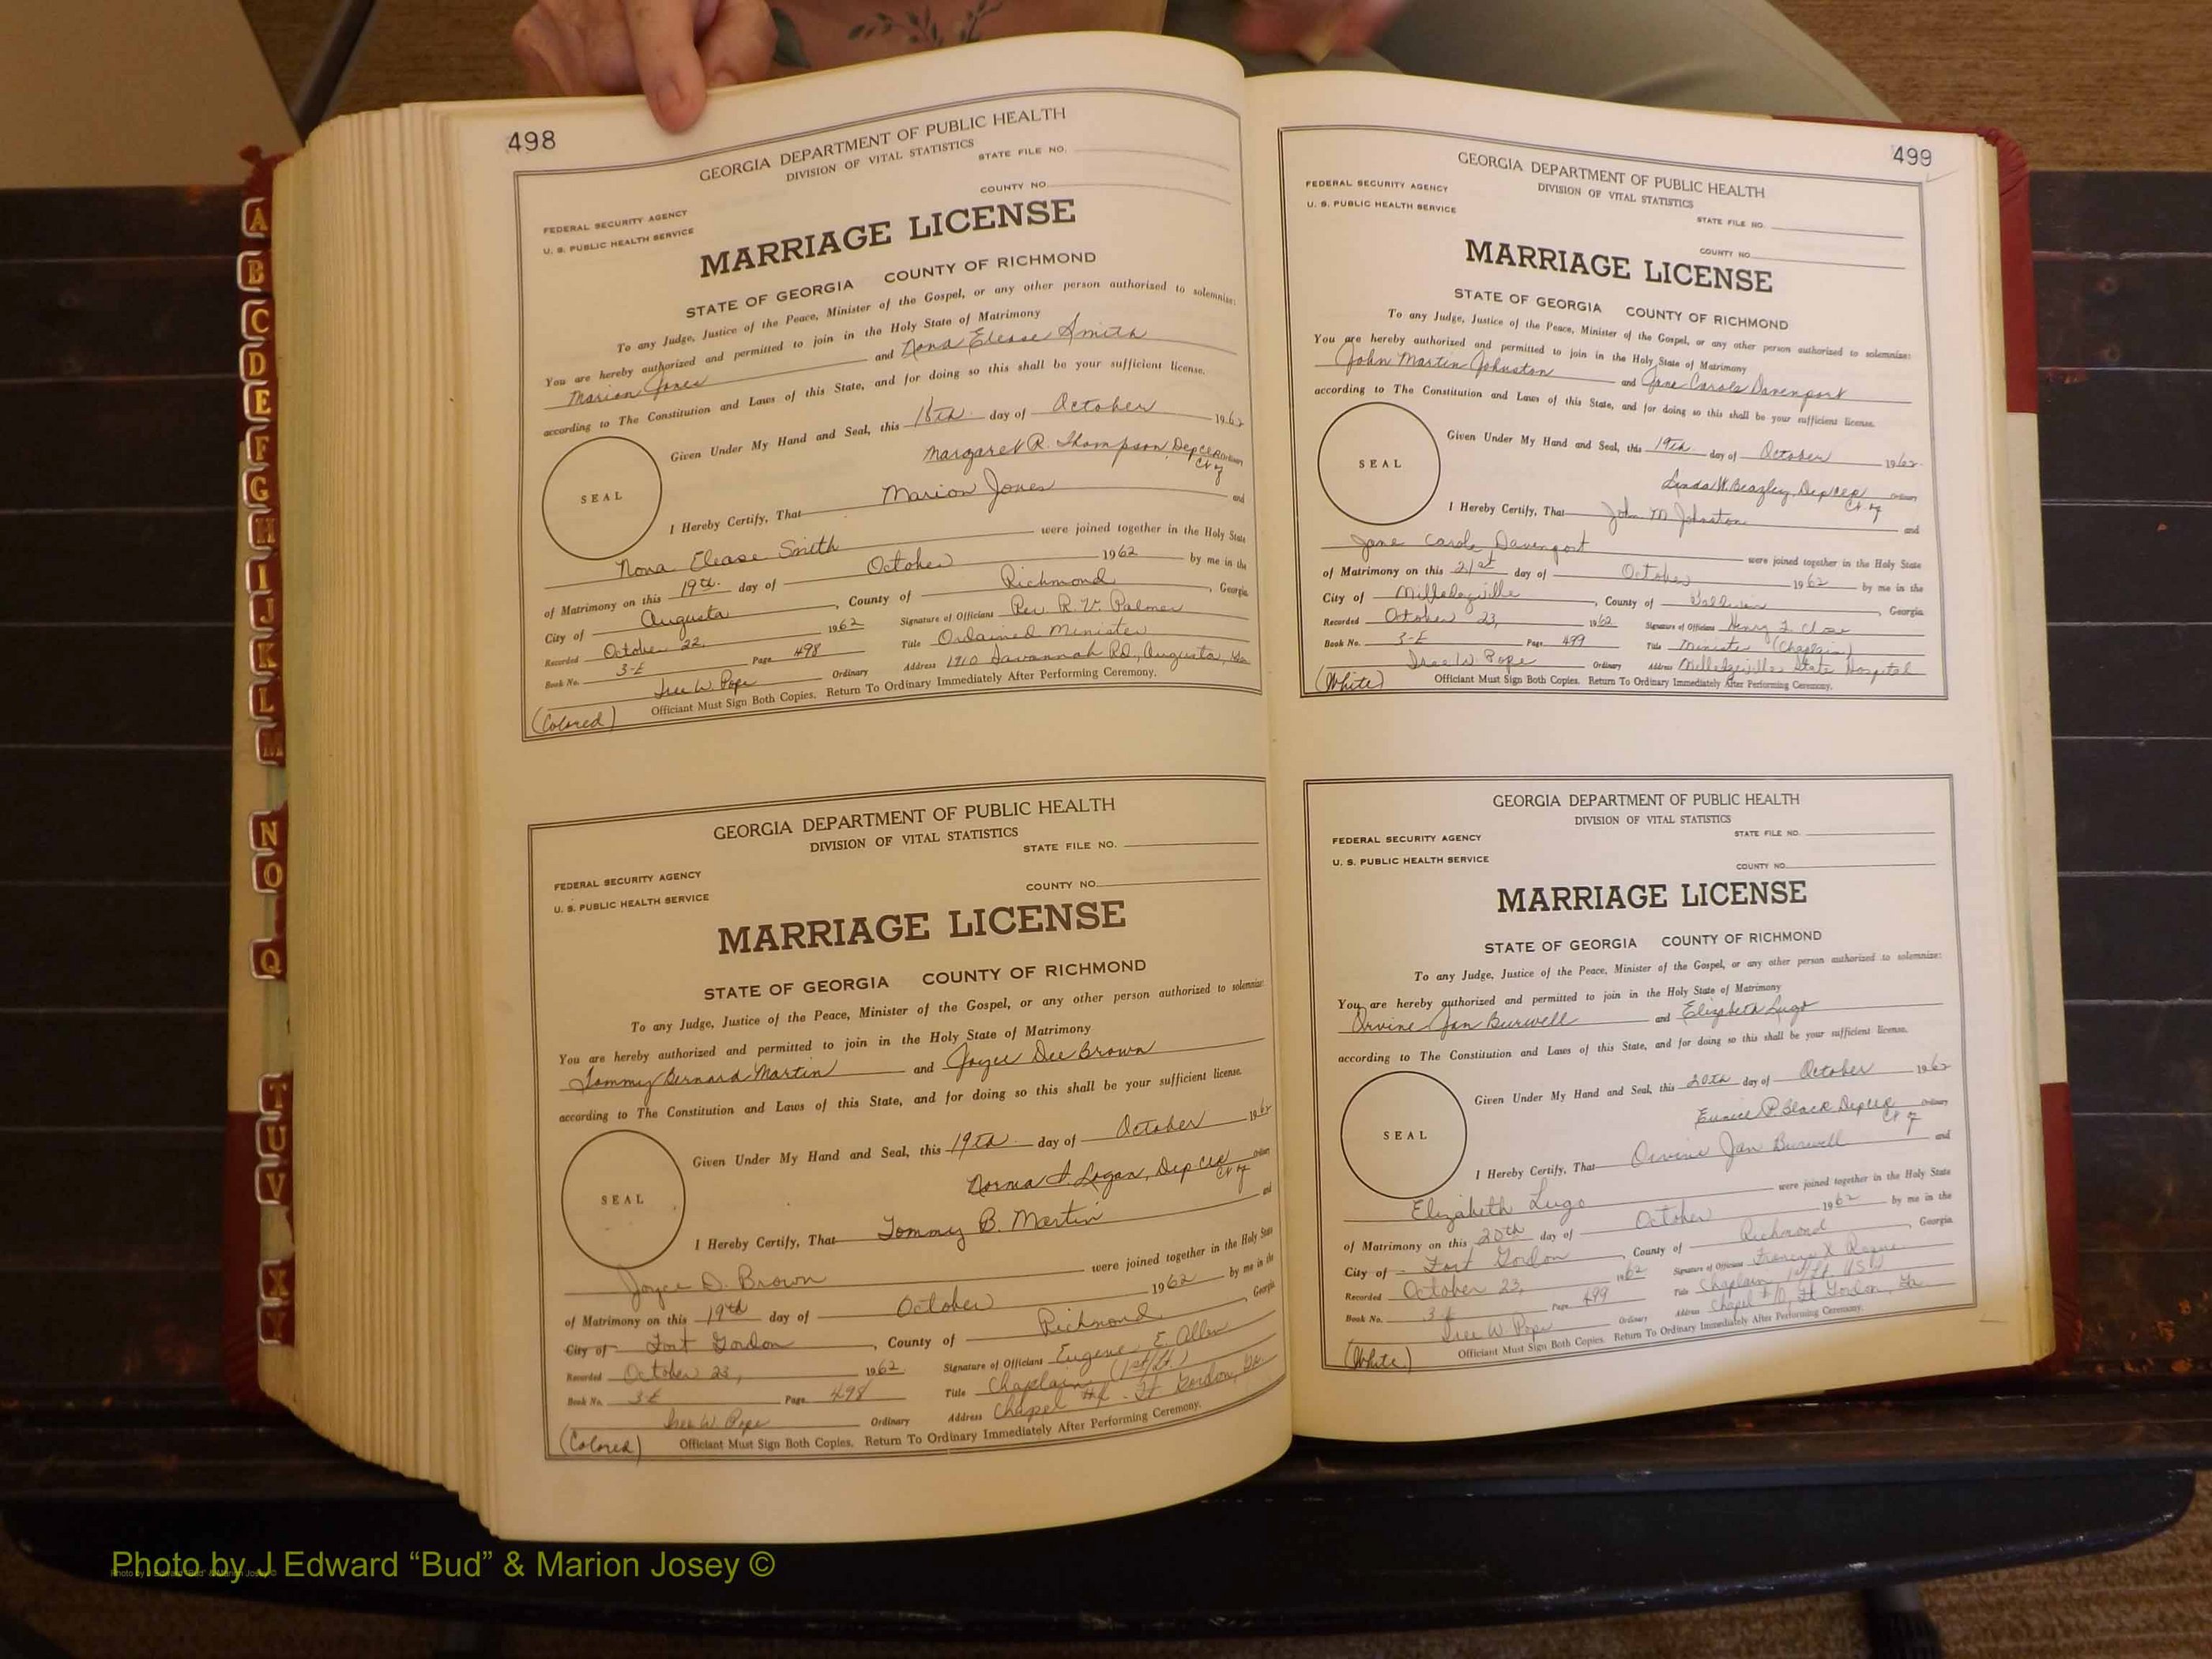 498
GEORGIA DEPARTMENT OF PUBLIC HEALTH
DIVISION OF VITAL STATISTICS
STATE FILE NO.
COUNTY NO.
FEDERAL SECURITY AGENCY
U. S. PUBLIC HEALTH SERVICE
MARRIAGE LICENSE
STATE OF GEORGIA COUNTY OF RICHMOND
To any Judge, Justice of the Peace, Minister of the Gospel, or any other person authorized to solemnize:
You are hereby authorized and permitted to join in the Holy State of Matrimony
Marion Jones and Nona Elease Smith
according to The Constitution and Laws of this State, and for doing so this shall be your sufficient license.
Given Under My Hand and Seal, this 18th day of October 1962
Margaret R. Thompson, Dep Clk Ordinary
Ct of
SEAL
I Hereby Certify, That Marion Jones and
Nona Elease Smith were joined together in the Holy State
of Matrimony on this 19th day of October 1962 by me in the
City of Augusta, County of Richmond, Georgia
Recorded October 22, 1962 Signature of Officiant Rev R. V. Palmer
Book No. 3-E Page 498 Title Ordained Minister
Iree W. Pope Ordinary Address 1910 Savannah Rd, Augusta, Ga
(Colored) Officiant Must Sign Both Copies. Return To Ordinary Immediately After Performing Ceremony.
GEORGIA DEPARTMENT OF PUBLIC HEALTH
DIVISION OF VITAL STATISTICS
STATE FILE NO.
FEDERAL SECURITY AGENCY
COUNTY NO.
U. S. PUBLIC HEALTH SERVICE
MARRIAGE LICENSE
STATE OF GEORGIA COUNTY OF RICHMOND
To any Judge, Justice of the Peace, Minister of the Gospel, or any other person authorized to solemnize:
You are hereby authorized and permitted to join in the Holy State of Matrimony
Tommy Bernard Martin and Joyce Dee Brown
according to The Constitution and Laws of this State, and for doing so this shall be your sufficient license.
Given Under My Hand and Seal, this 19th day of October 1962
Norma F. Logan, Dep Clk Ordinary
Ct of
SEAL
I Hereby Certify, That Tommy B. Martin and
Joyce D. Brown were joined together in the Holy State
of Matrimony on this 19th day of October 1962 by me in the
City of Fort Gordon, County of Richmond, Georgia
Recorded October 23, 1962 Signature of Officiant Eugene E. Allen
Book No. 3-E Page 498 Title Chaplain (1st/Lt.)
Iree W. Pope Ordinary Address Chapel - Ft Gordon, Ga.
(Colored) Officiant Must Sign Both Copies. Return To Ordinary Immediately After Performing Ceremony.
499
GEORGIA DEPARTMENT OF PUBLIC HEALTH
DIVISION OF VITAL STATISTICS
FEDERAL SECURITY AGENCY
U. S. PUBLIC HEALTH SERVICE
STATE FILE NO.
COUNTY NO.
MARRIAGE LICENSE
STATE OF GEORGIA COUNTY OF RICHMOND
To any Judge, Justice of the Peace, Minister of the Gospel, or any other person authorized to solemnize:
You are hereby authorized and permitted to join in the Holy State of Matrimony
John Martin Johnston and Jane Carole Davenport
according to The Constitution and Laws of this State, and for doing so this shall be your sufficient license.
Given Under My Hand and Seal, this 19th day of October 1962
Linda W. Beazley, Dep Clk Ordinary
Ct of
SEAL
I Hereby Certify, That John M Johnston and
Jane Carole Davenport were joined together in the Holy State
of Matrimony on this 21st day of October 1962 by me in the
City of Milledgeville, County of Baldwin, Georgia
Recorded October 23, 1962 Signature of Officiant Henry L Close
Book No. 3-E Page 499 Title Minister (Chaplain)
Iree W. Pope Ordinary Address Milledgeville State Hospital
(White) Officiant Must Sign Both Copies. Return To Ordinary Immediately After Performing Ceremony.
GEORGIA DEPARTMENT OF PUBLIC HEALTH
DIVISION OF VITAL STATISTICS
STATE FILE NO.
FEDERAL SECURITY AGENCY
U. S. PUBLIC HEALTH SERVICE
COUNTY NO.
MARRIAGE LICENSE
STATE OF GEORGIA COUNTY OF RICHMOND
To any Judge, Justice of the Peace, Minister of the Gospel, or any other person authorized to solemnize:
You are hereby authorized and permitted to join in the Holy State of Matrimony
Orvine Jan Burwell and Elizabeth Lugo
according to The Constitution and Laws of this State, and for doing so this shall be your sufficient license.
Given Under My Hand and Seal, this 20th day of October 1962
Eunice P Black Dep Clk Ordinary
Ct of
SEAL
I Hereby Certify, That Orvine Jan Burwell and
Elizabeth Lugo were joined together in the Holy State
of Matrimony on this 20th day of October 1962 by me in the
City of Fort Gordon, County of Richmond, Georgia
Recorded October 23, 1962 Signature of Officiant X
Book No. 3-E Page 499 Title Chaplain 1st/Lt. USA
Iree W Pope Ordinary Address Chapel #10 Ft Gordon, Ga.
(White) Officiant Must Sign Both Copies. Return To Ordinary Immediately After Performing Ceremony.
A
B
C
D
E
F
G
H
I
J
K
L
M
N
O
Q
T
U
V
X
Y
Photo by J Edward “Bud” & Marion Josey ©
Photo by J Edward “Bud” & Marion Josey ©